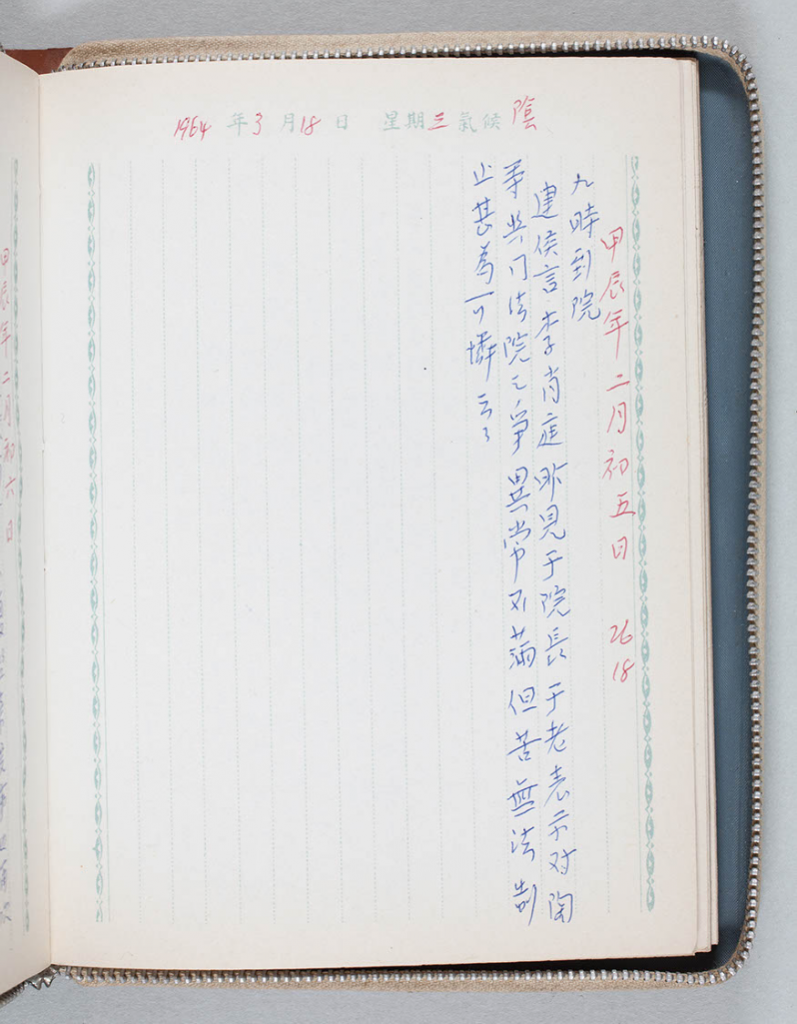 1964年3月18日 星期三 氣候 陰
甲辰年二月初五日 26 18
九時到院
建侯言李肖庭昨見于院長于老表示对陶
等與司法院之爭異常不滿但苦無法制
止甚為可憐云云
甲辰年二月初六日